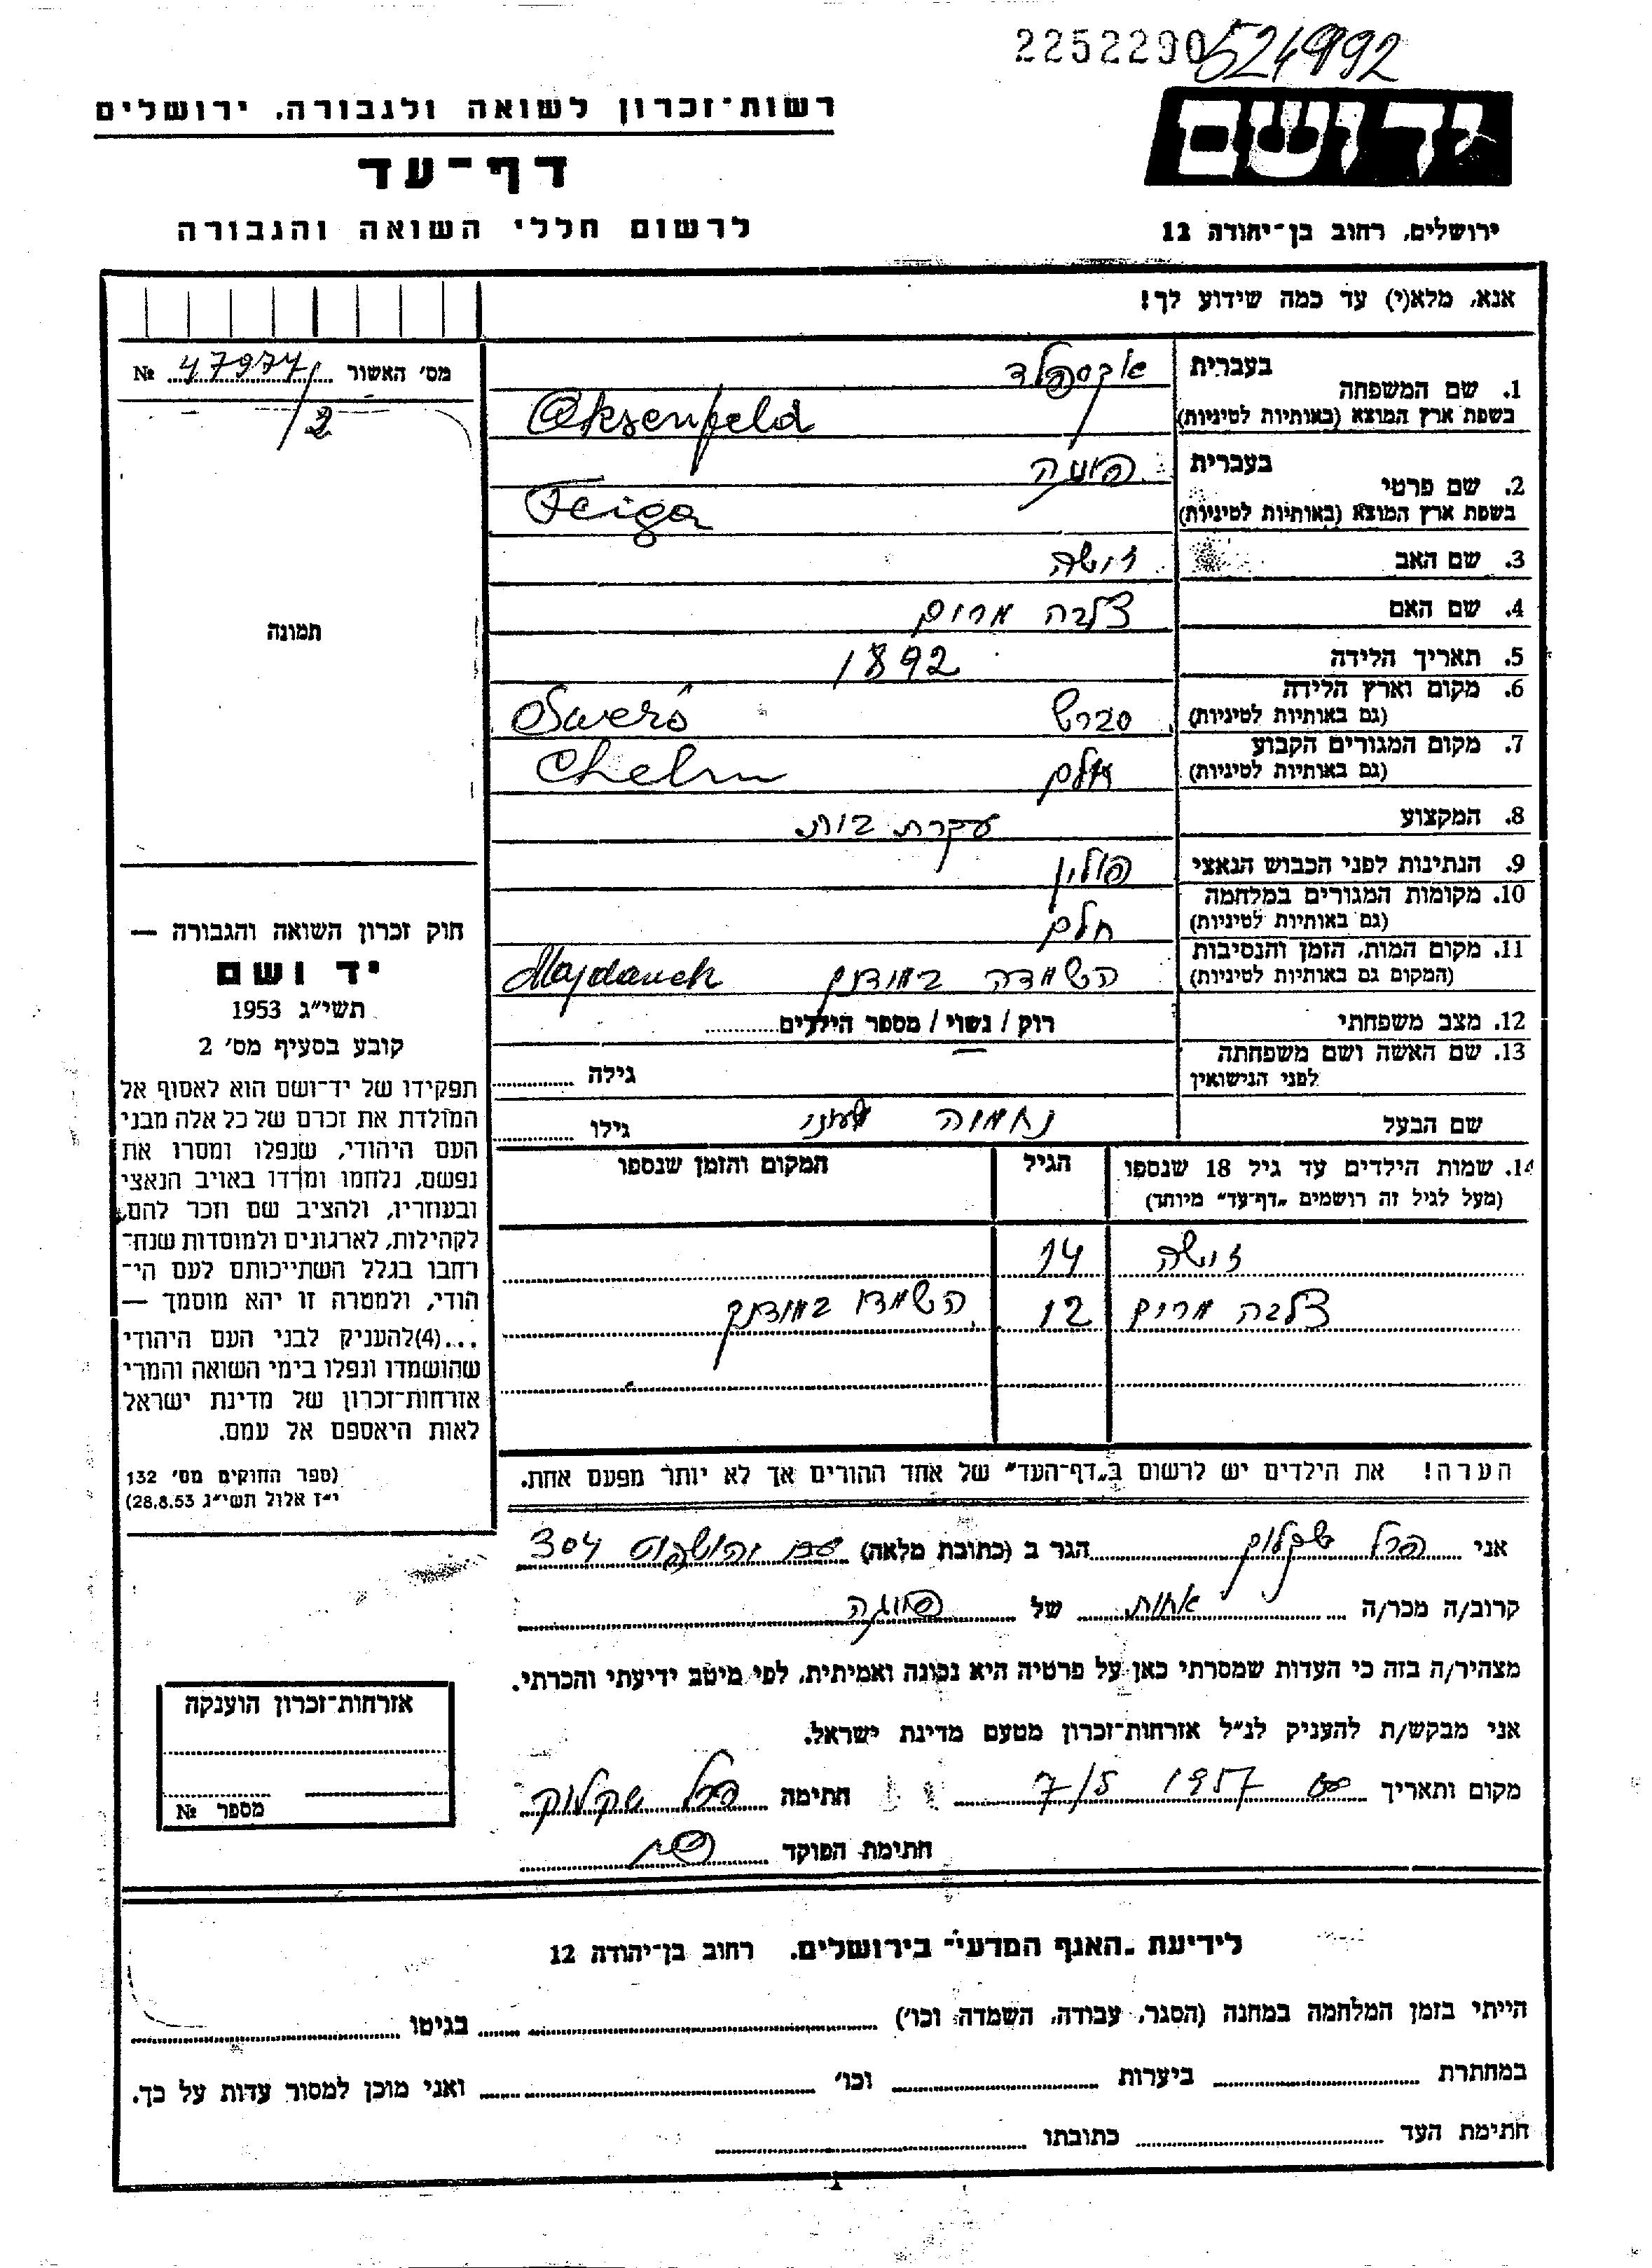 2252290 521992
רשות־זכרון לשואה ולגבורה, ירושלים
יד ושם
דף־עד
לרשום חללי השואה והגבורה
ירושלים, רחוב בן־יהודה 12
אנא, מלא(י) עד כמה שידוע לך!
מס׳ האשור 47974/2 №
תמונה
1. שם המשפחה
בעברית אקסנפלד
בשפת ארץ המוצא (באותיות לטיניות) Oksenfeld
2. שם פרטי
בעברית פייגה
בשפת ארץ המוצא (באותיות לטיניות) Feiga
3. שם האב זישה
4. שם האם מרים
5. תאריך הלידה 1892
6. מקום וארץ הלידה
(גם באותיות לטיניות) Swerś
7. מקום המגורים הקבוע
(גם באותיות לטיניות) חלם Chelm
8. המקצוע עקרת בית
9. הנתינות לפני הכבוש הנאצי פולין
10. מקומות המגורים במלחמה
(גם באותיות לטיניות) חלם
11. מקום המות, הזמן והנסיבות
(המקום גם באותיות לטיניות) השמדה במידנק Majdanek
12. מצב משפחתי רוק / נשוי / מספר הילדים
13. שם האשה ושם משפחתה
לפני הנישואין — גילה
שם הבעל נחמיה גילו
14. שמות הילדים עד גיל 18 שנספו הגיל המקום והזמן שנספו
(מעל לגיל זה רושמים „דף־עד” מיוחד)
זישה 14
מרים 12 השמדו במידנק
הערה! את הילדים יש לרשום ב„דף־העד” של אחד ההורים אך לא יותר מפעם אחת.
חוק זכרון השואה והגבורה —
יד ושם
תשי״ג 1953
קובע בסעיף מס׳ 2
תפקידו של יד־ושם הוא לאסוף אל
המולדת את זכרם של כל אלה מבני
העם היהודי, שנפלו ומסרו את
נפשם, נלחמו ומרדו באויב הנאצי
ובעוזריו, ולהציב שם וזכר להם,
לקהילות, לארגונים ולמוסדות שנח־
רחבו בגלל השתייכותם לעם הי־
הודי, ולמטרה זו יהא מוסמך —
...(4)להעניק לבני העם היהודי
שהושמדו ונפלו בימי השואה והמרי
אזרחות־זכרון של מדינת ישראל
לאות היאספם אל עמם.
(ספר החוקים מס׳ 132
י״ז אלול תשי״ג 28.8.53)
אני פרל שקלוק הגר ב (כתובת מלאה) 304
קרוב/ה מכר/ה אחות של פייגה
מצהיר/ה בזה כי העדות שמסרתי כאן על פרטיה היא נכונה ואמיתית, לפי מיטב ידיעתי והכרתי.
אני מבקש/ת להעניק לנ״ל אזרחות־זכרון מטעם מדינת ישראל.
מקום ותאריך 7/5 1957 חתימה פרל שקלוק
חתימת הפוקד
אזרחות־זכרון הוענקה
מספר №
לידיעת „האגף המדעי” בירושלים. רחוב בן־יהודה 12
הייתי בזמן המלחמה במחנה (הסגר, עבודה, השמדה וכו׳) בגיטו
במחתרת ביערות וכו׳ ואני מוכן למסור עדות על כך.
חתימת העד כתובתו